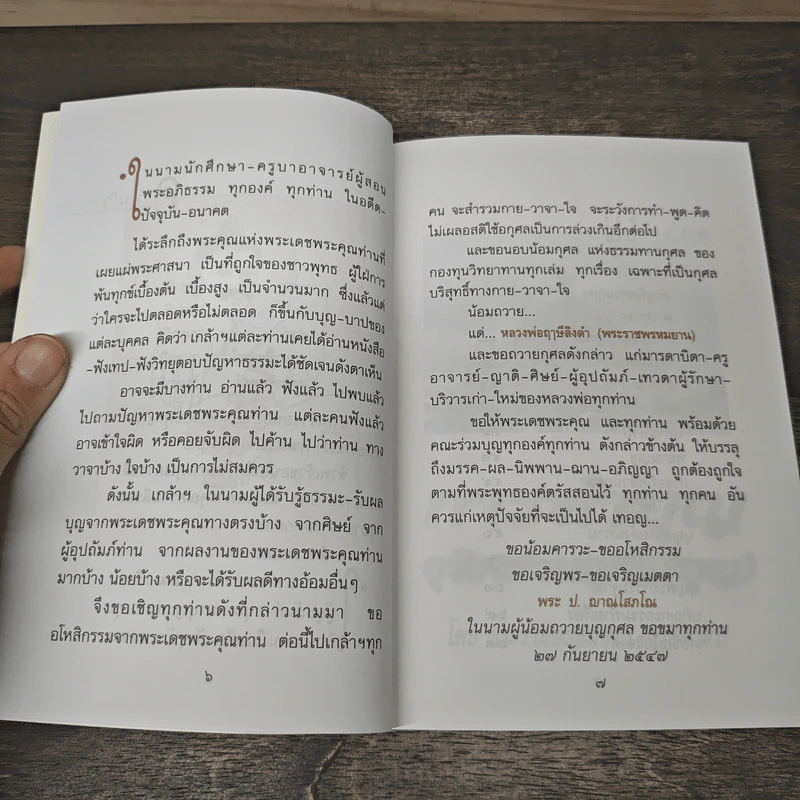 ในนามนักศึกษา-ครูบาอาจารย์ผู้สอน
พระอภิธรรม ทุกองค์ ทุกท่าน ในอดีต-
ปัจจุบัน-อนาคต
ได้ระลึกถึงพระคุณแห่งพระเดชพระคุณท่านที่
เผยแผ่พระศาสนา เป็นที่ถูกใจของชาวพุทธ ผู้ใฝ่การ
พ้นทุกข์เบื้องต้น เบื้องสูง เป็นจำนวนมาก ซึ่งแล้วแต่
ว่าใครจะไปตลอดหรือไม่ตลอด ก็ขึ้นกับบุญ-บาปของ
แต่ละบุคคล คิดว่า เกล้าฯแต่ละท่านเคยได้อ่านหนังสือ
-ฟังเทป-ฟังวิทยุตอบปัญหาธรรมะได้ชัดเจนดังตาเห็น
อาจจะมีบางท่าน อ่านแล้ว ฟังแล้ว ไปพบแล้ว
ไปถามปัญหาพระเดชพระคุณท่าน แต่ละคนฟังแล้ว
อาจเข้าใจผิด หรือคอยจับผิด ไปค้าน ไปว่าท่าน ทาง
วาจาบ้าง ใจบ้าง เป็นการไม่สมควร
ดังนั้น เกล้าฯ ในนามผู้ได้รับรู้ธรรมะ-รับผล
บุญจากพระเดชพระคุณทางตรงบ้าง จากศิษย์ จาก
ผู้อุปถัมภ์ท่าน จากผลงานของพระเดชพระคุณท่าน
มากบ้าง น้อยบ้าง หรือจะได้รับผลดีทางอ้อมอื่นๆ
จึงขอเชิญทุกท่านดังที่กล่าวนามมา ขอ
อโหสิกรรมจากพระเดชพระคุณท่าน ต่อนี้ไปเกล้าฯทุก
๖
คน จะสำรวมกาย-วาจา-ใจ จะระวังการทำ-พูด-คิด
ไม่เผลอสติใช้อกุศลเป็นการล่วงเกินอีกต่อไป
และขอนอบน้อมกุศล แห่งธรรมทานกุศล ของ
กองทุนวิทยาทานทุกเล่ม ทุกเรื่อง เฉพาะที่เป็นกุศล
บริสุทธิ์ทางกาย-วาจา-ใจ
น้อมถวาย...
แด่... หลวงพ่อฤๅษีลิงดำ (พระราชพรหมยาน)
และขอถวายกุศลดังกล่าว แก่มารดาบิดา-ครู
อาจารย์-ญาติ-ศิษย์-ผู้อุปถัมภ์-เทวดาผู้รักษา-
บริวารเก่า-ใหม่ของหลวงพ่อทุกท่าน
ขอให้พระเดชพระคุณ และทุกท่าน พร้อมด้วย
คณะร่วมบุญทุกองค์ทุกท่าน ดังกล่าวข้างต้น ให้บรรลุ
ถึงมรรค-ผล-นิพพาน-ฌาน-อภิญญา ถูกต้องถูกใจ
ตามที่พระพุทธองค์ตรัสสอนไว้ ทุกท่าน ทุกคน อัน
ควรแก่เหตุปัจจัยที่จะเป็นไปได้ เทอญ...
ขอน้อมคารวะ-ขออโหสิกรรม
ขอเจริญพร-ขอเจริญเมตตา
พระ ป. ญาณโสภโณ
ในนามผู้น้อมถวายบุญกุศล ขอขมาทุกท่าน
๒๗ กันยายน ๒๕๔๗
๗